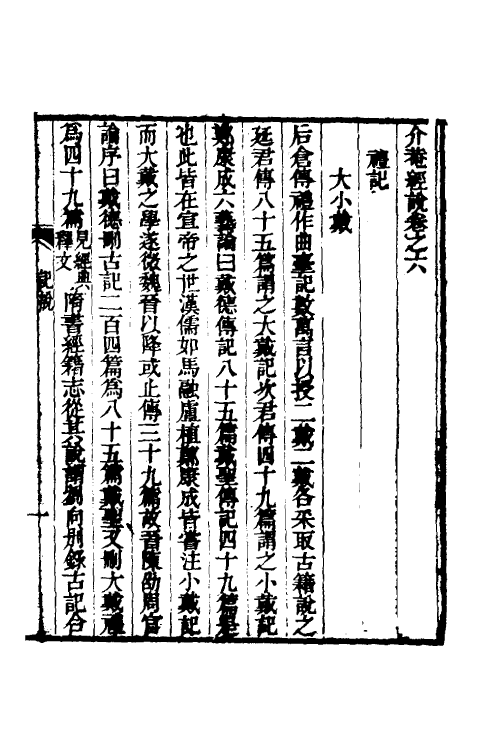 介菴經說卷之六
禮記
大小戴
后倉傳禮作曲臺記數萬言以授二戴二戴各采取古籍說之
延君傳八十五篇謂之大戴記次君傳四十九篇謂之小戴記
鄭康成六藝論曰戴德傳記八十五篇戴聖傳記四十九篇是
也此皆在宣帝之世漢儒如馬融盧植鄭康成皆嘗注小戴記
而大戴之學遂微魏晉以降或止傳三十九篇故晉陳劭周官
論序曰戴德刪古記二百四篇為八十五篇戴聖又刪大戴禮
為四十九篇見經典釋文隋書經籍志從其說謂劉向別錄古記合
記說
一